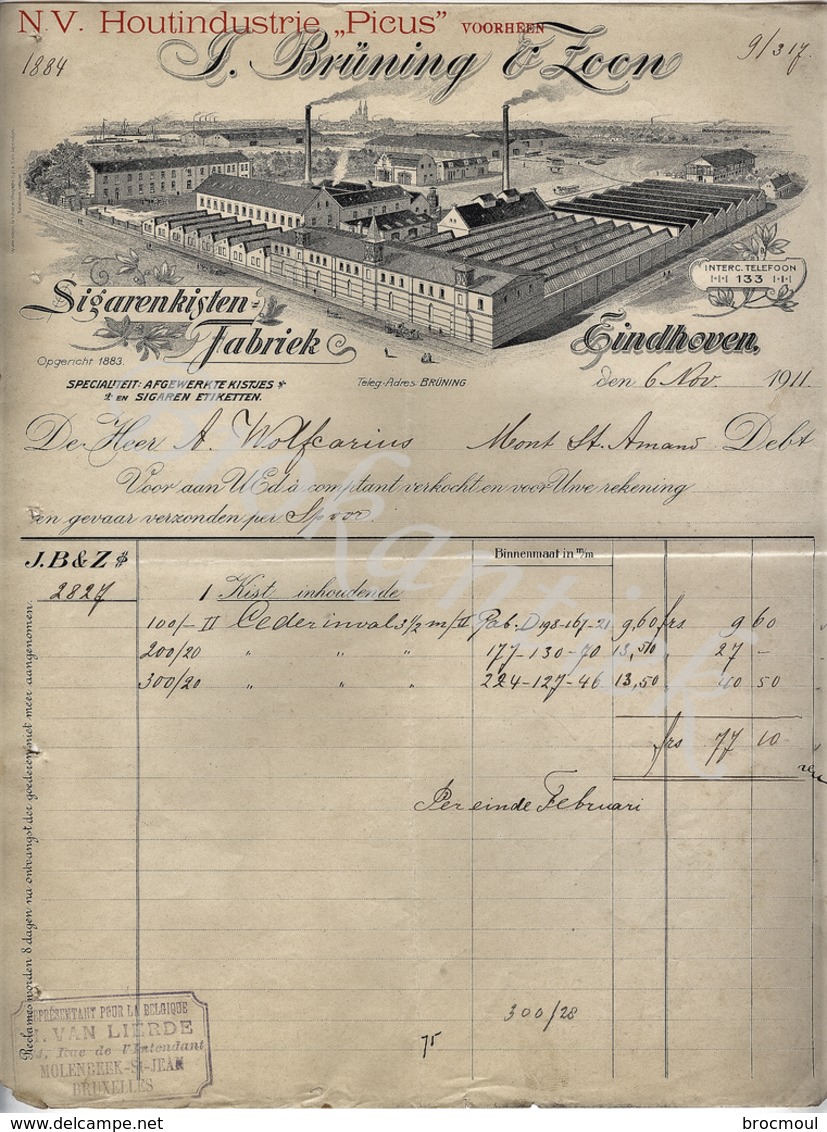 N.V. Houtindustrie „Picus” VOORHEEN
J. Brüning & Zoon
1884
9/3 17.
INTERC. TELEFOON
133
Sigarenkisten=
Fabriek
Opgericht 1883.
SPECIALITEIT: AFGEWERKTE KISTJES
EN SIGAREN ETIKETTEN.
Teleg.-Adres BRÜNING
Eindhoven,
den 6 Nov. 1911.
De Heer A. Wolfcarius Mont St. Amand Debt
Voor aan UEd à comptant verkocht en voor Uwe rekening
en gevaar verzonden per Spoor.
J.B & Z
Binnenmaat in m/m
2827 1 Kist inhoudende
100/- II Cederinval 3½ m/II Pab. D 198-167-21 9,60 frs 9 60
200/20 " " " 177-130-70 13,50 27 -
300/20 " " " 224-127-46 13,50 40 50
frs 77 10
Per einde Februari
300/28
75
Reclames worden 8 dagen na ontvangst der goederen niet meer aangenomen.
REPRÉSENTANT POUR LA BELGIQUE
VAN LIERDE
Rue de l'Intendant
MOLENBEEK-St-JEAN
BRUXELLES
Brokantiek
brocmoul